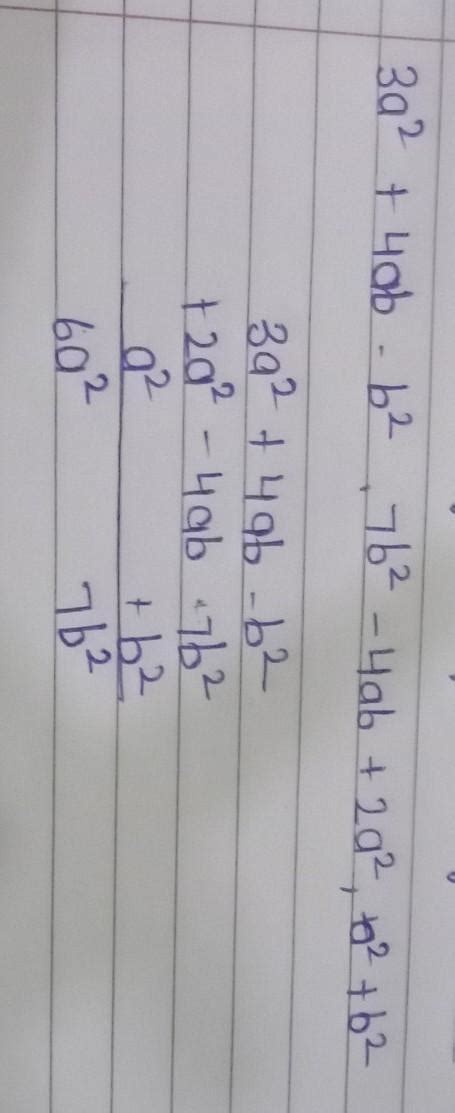 3a² + 4ab - b² , 7b² - 4ab + 2a² , a² + b²
3a² + 4ab - b²
+ 2a² - 4ab + 7b²
a² + b²
6a² 7b²